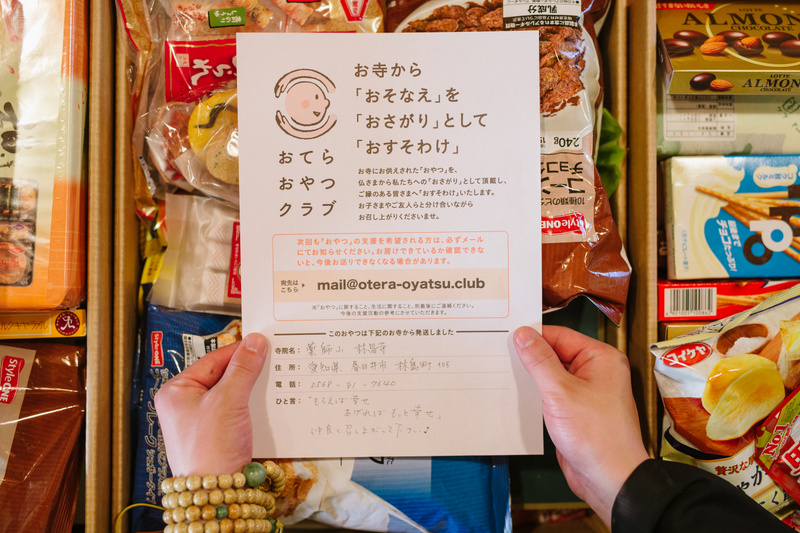 おてら
おやつ
クラブ
お寺から
「おそなえ」を
「おさがり」として
「おすそわけ」
お寺にお供えされた「おやつ」を、
仏さまから私たちへの「おさがり」として頂戴し、
ご縁のある皆さまへ「おすそわけ」いたします。
お子さまやご友人らと分け合いながら
お召し上がりくださいませ。
次回も「おやつ」の支援を希望される方は、必ずメール
にてお知らせください。お届けできているか確認できない
と、今後お送りできなくなる場合があります。
宛先は
こちら
mail@otera-oyatsu.club
※「おやつ」に関すること、生活に関すること、到着後にご連絡ください。
今後の支援活動の参考にさせていただきます。
このおやつは下記のお寺から発送しました
寺院名： 薬師山 林昌寺
住 所： 愛知県 春日井市 林島町
電 話： 0568-91-7640
ひと言： 「もらえば幸せ
あげればもっと幸せ」
仲良く召し上がって下さい♪
乳成分
240g
チョコ
StyleONE
StyleONE
StyleONE
LOTTE
ALMOND
CHOCOLATE
ALMON
チョコたっぷり!
贅沢な